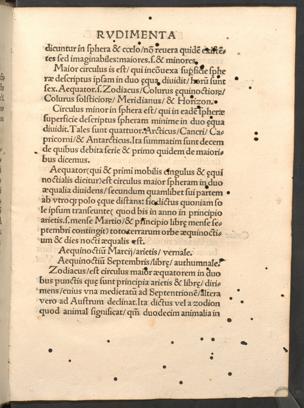 RVDIMENTA
dicuntur in sphera & cœlo/nõ reuera quidẽ existẽ
tes sed imaginabiles: maiores.s.& minores.
Maior circulus is est/ qui in cõuexa superficie sphe
ræ descriptus ipsam in duo equa diuidit/horũ sunt
sex. Aequator.s.Zodiacus/Colurus equinoctiorẽ/
Colurus solsticiorẽ/Meridianus/& Horizon.
Circulus minor in sphera est/ qui in eadẽ spheræ
superficie descriptus spheram minime in duo equa
diuidit. Tales sunt quattuor. Arcticus/Cancri/Ca
pricorni/& Antarcticus. Ita summatim sunt decem
de quibus debita serie & primo quidem de maiori
bus dicemus.
Aequator(qui & primi mobilis cingulus & equi
noctialis dicitur)est circulus maior spheram in duo
æqualia diuidens/secundum quamlibet sui partem
ab vtroqʒ polo eque distans: sic dictus quoniam so
le ipsum transeunte(quod bis in anno in principio
arietis.s.mense Martio/& principio librę mense se
ptembri contingit)toto terrarum orbe æquinoctis
um & dies nocti æqualis est.
Aequinoctiũ Marcij/arietis/vernale.
Aequinoctiũ Septembris/librę/authumnale.
Zodiacus/est circulus maior æquatorem in duo
bus punctis quę sunt principia arietis & librę/diri
mens/cuius vna medietatũ ad Septentrionẽ/altera
vero ad Austrum declinat. Ita dictus vel a zodion
quod animal significat/qm̃ duodecim animalia in